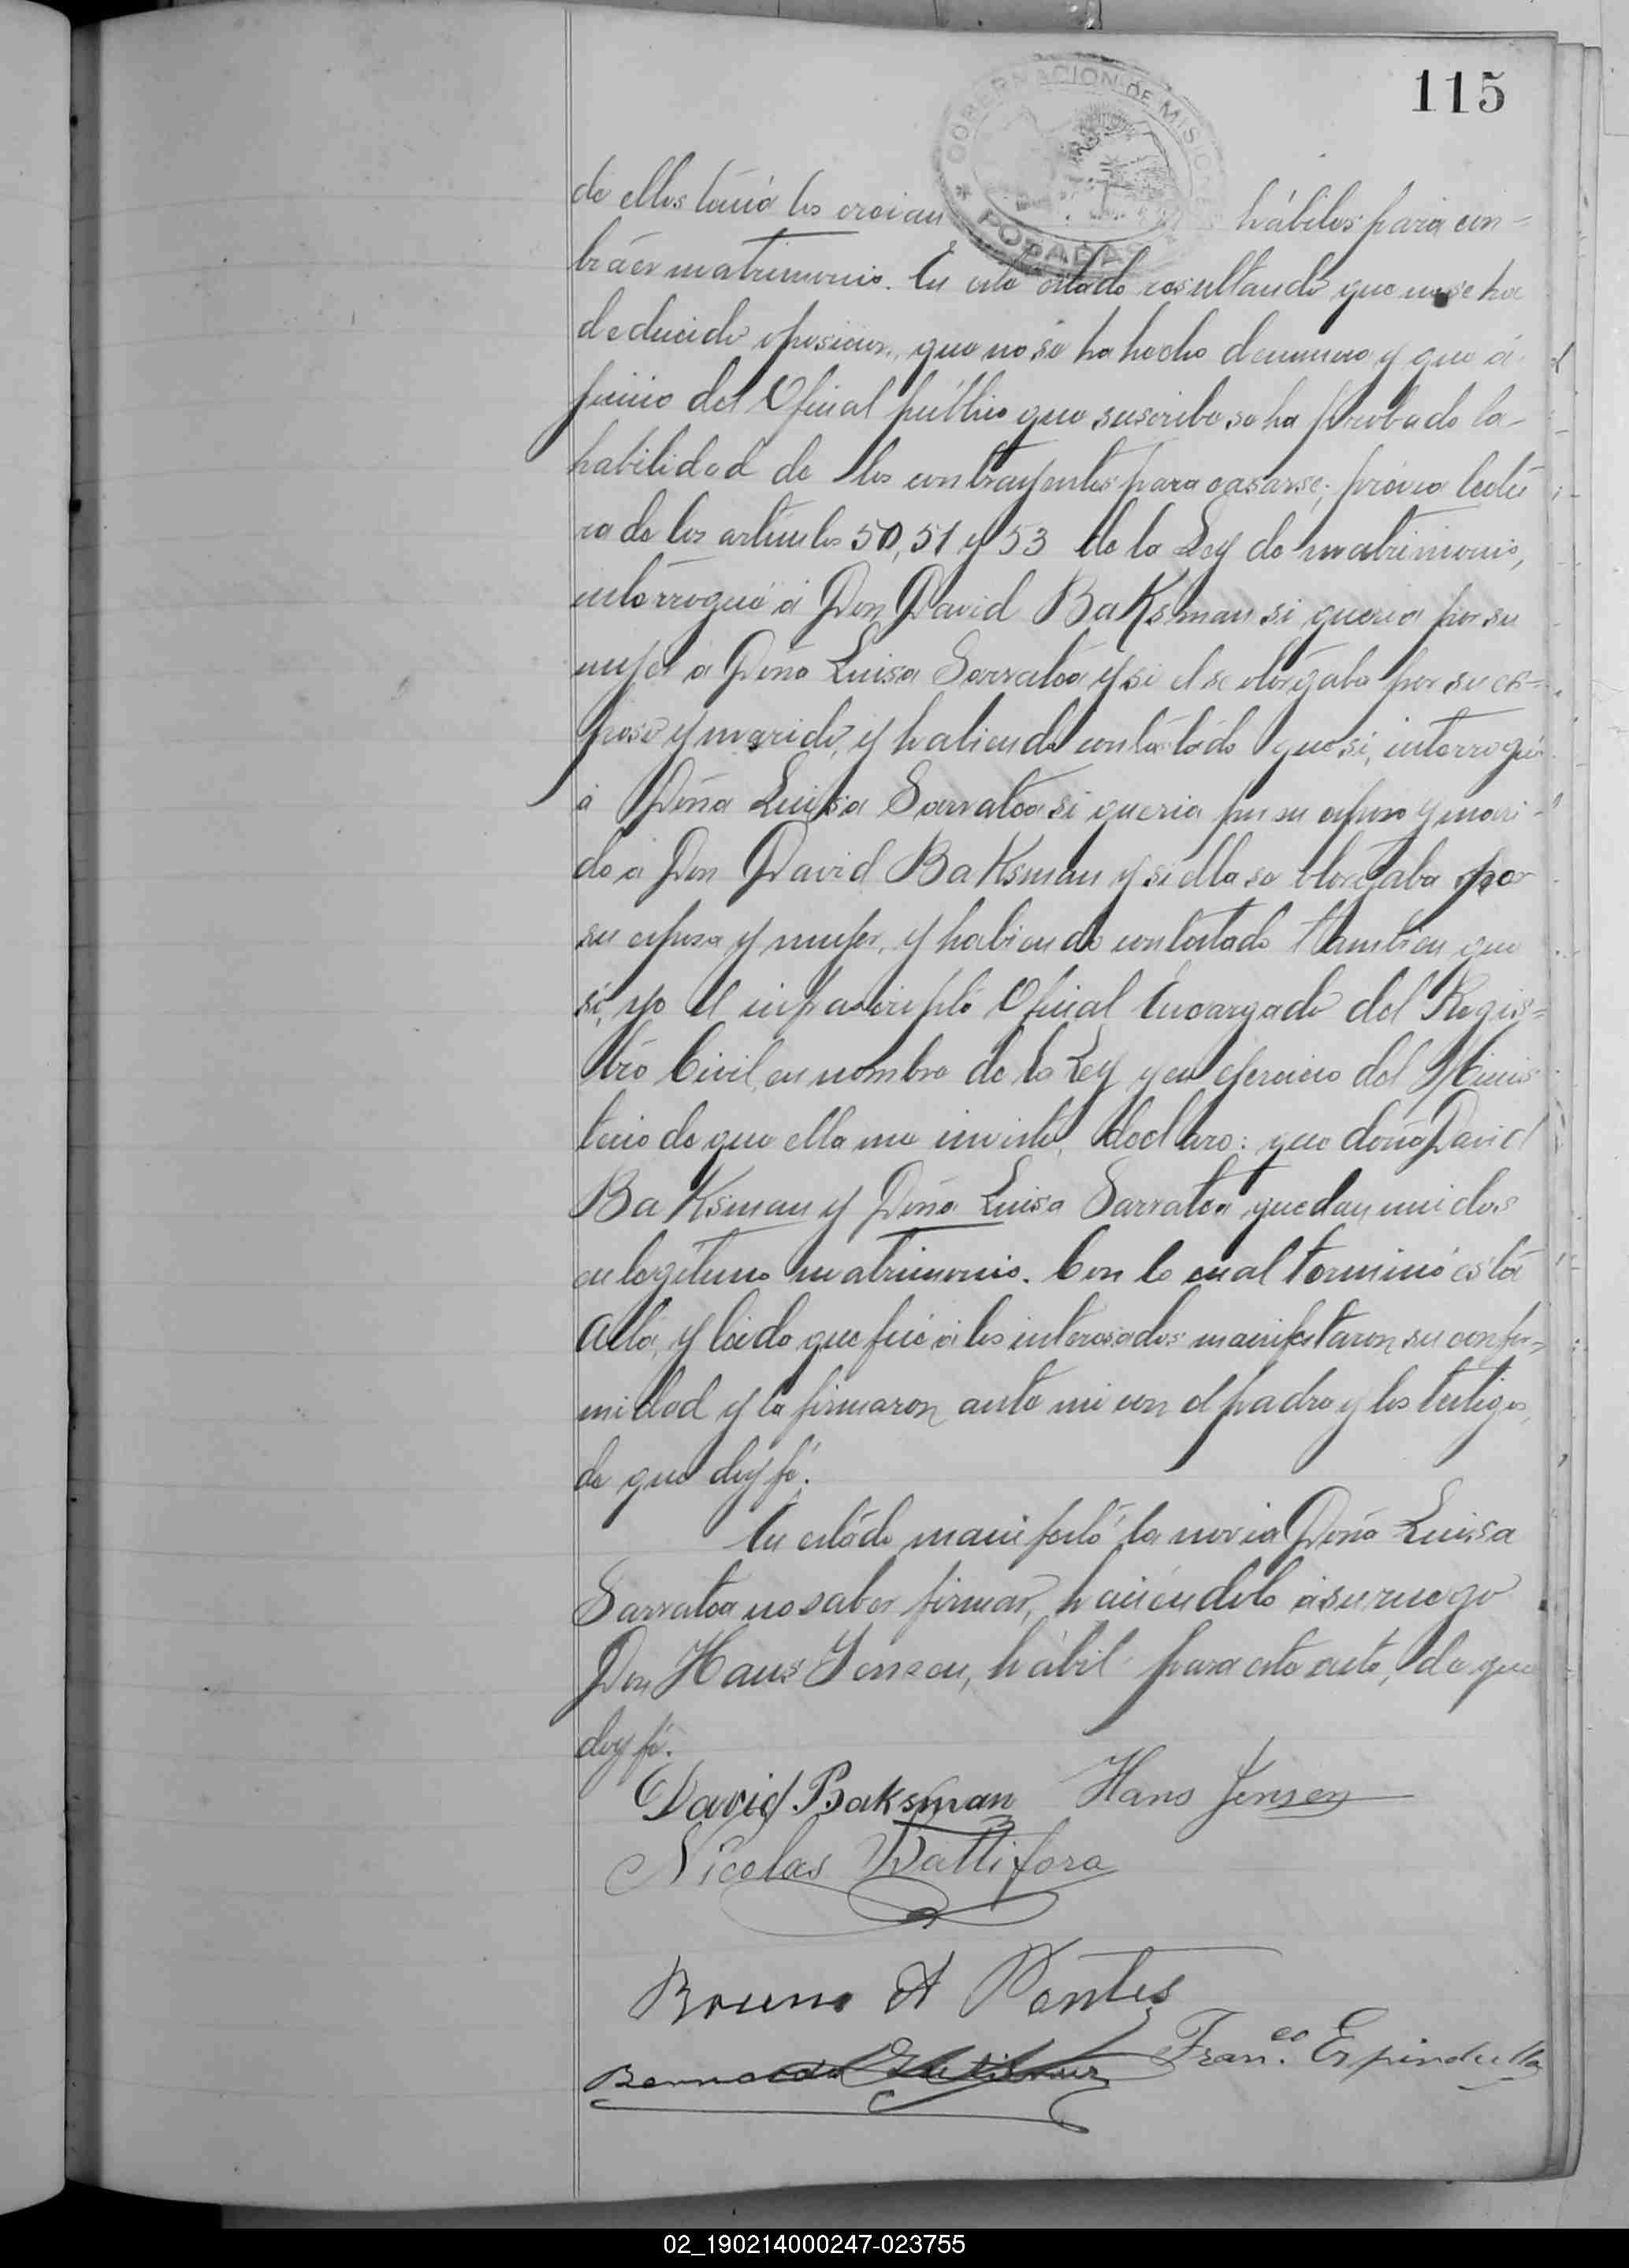 115
GOBERNACION DE MISIONES
* POSADAS *
de ellos tenia los creian hábiles para con-
traer matrimonio. En este estado resultando que no se ha
deducido oposicion, que no se ha hecho denuncia y que á
juicio del Oficial público que suscribe se ha probado la
habilidad de los contrayentes para casarse; prévia lectu
ra de los artículos 50, 51 y 53 de la Ley de matrimonio,
interrogué á Don David BaKsman si queria por su
mujer a Doña Luisa Sarratea y si el se otorgaba por su es=
poso y marido, y habiendo contestado que si, interrogué
á Doña Luisa Sarratea si queria por su esposo y mari-
do á Don David BaKsman y si ella se otorgaba por
su esposa y mujer, y habiendo contestado tambien que
si, yo el infrascripto Oficial Encargado del Regis=
tro Civil, en nombre de la Ley y en ejercicio del Minis
terio de que ella me inviste, declaro: que David
BaKsman y Doña Luisa Sarratea quedan unidos
en legítimo matrimonio. Con lo cual terminó esta
Acta, y leida que fué á los interesados manifestaron su confor=
midad y la firmaron ante mi con el padre y los testigos,
de que doy fé.
En estado manifestó la novia Doña Luisa
Sarratea no saber firmar, haciéndolo á su ruego
Don Hans Jensen, hábil para este acto, de que
doy fé.
David Baksman Hans Jensen
Nicolas Battifora
Bruno A Pontes
Bernardo Gutierrez Fran.co Espindulla
02_190214000247-023755